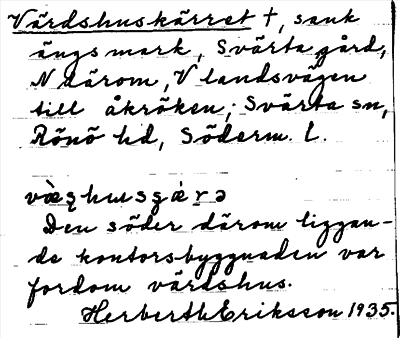 Värdshuskärret †, sank
ängsmark, Svärta gård,
N därom, V landsvägen
till åkröken; Svärta sn,
Rönö hd, Söderm. l.
væ̀ʂhusçæ̀rə
Den söder därom liggan-
de kontorsbyggnaden var
fordom värdshus.
Herberth Eriksson 1935.